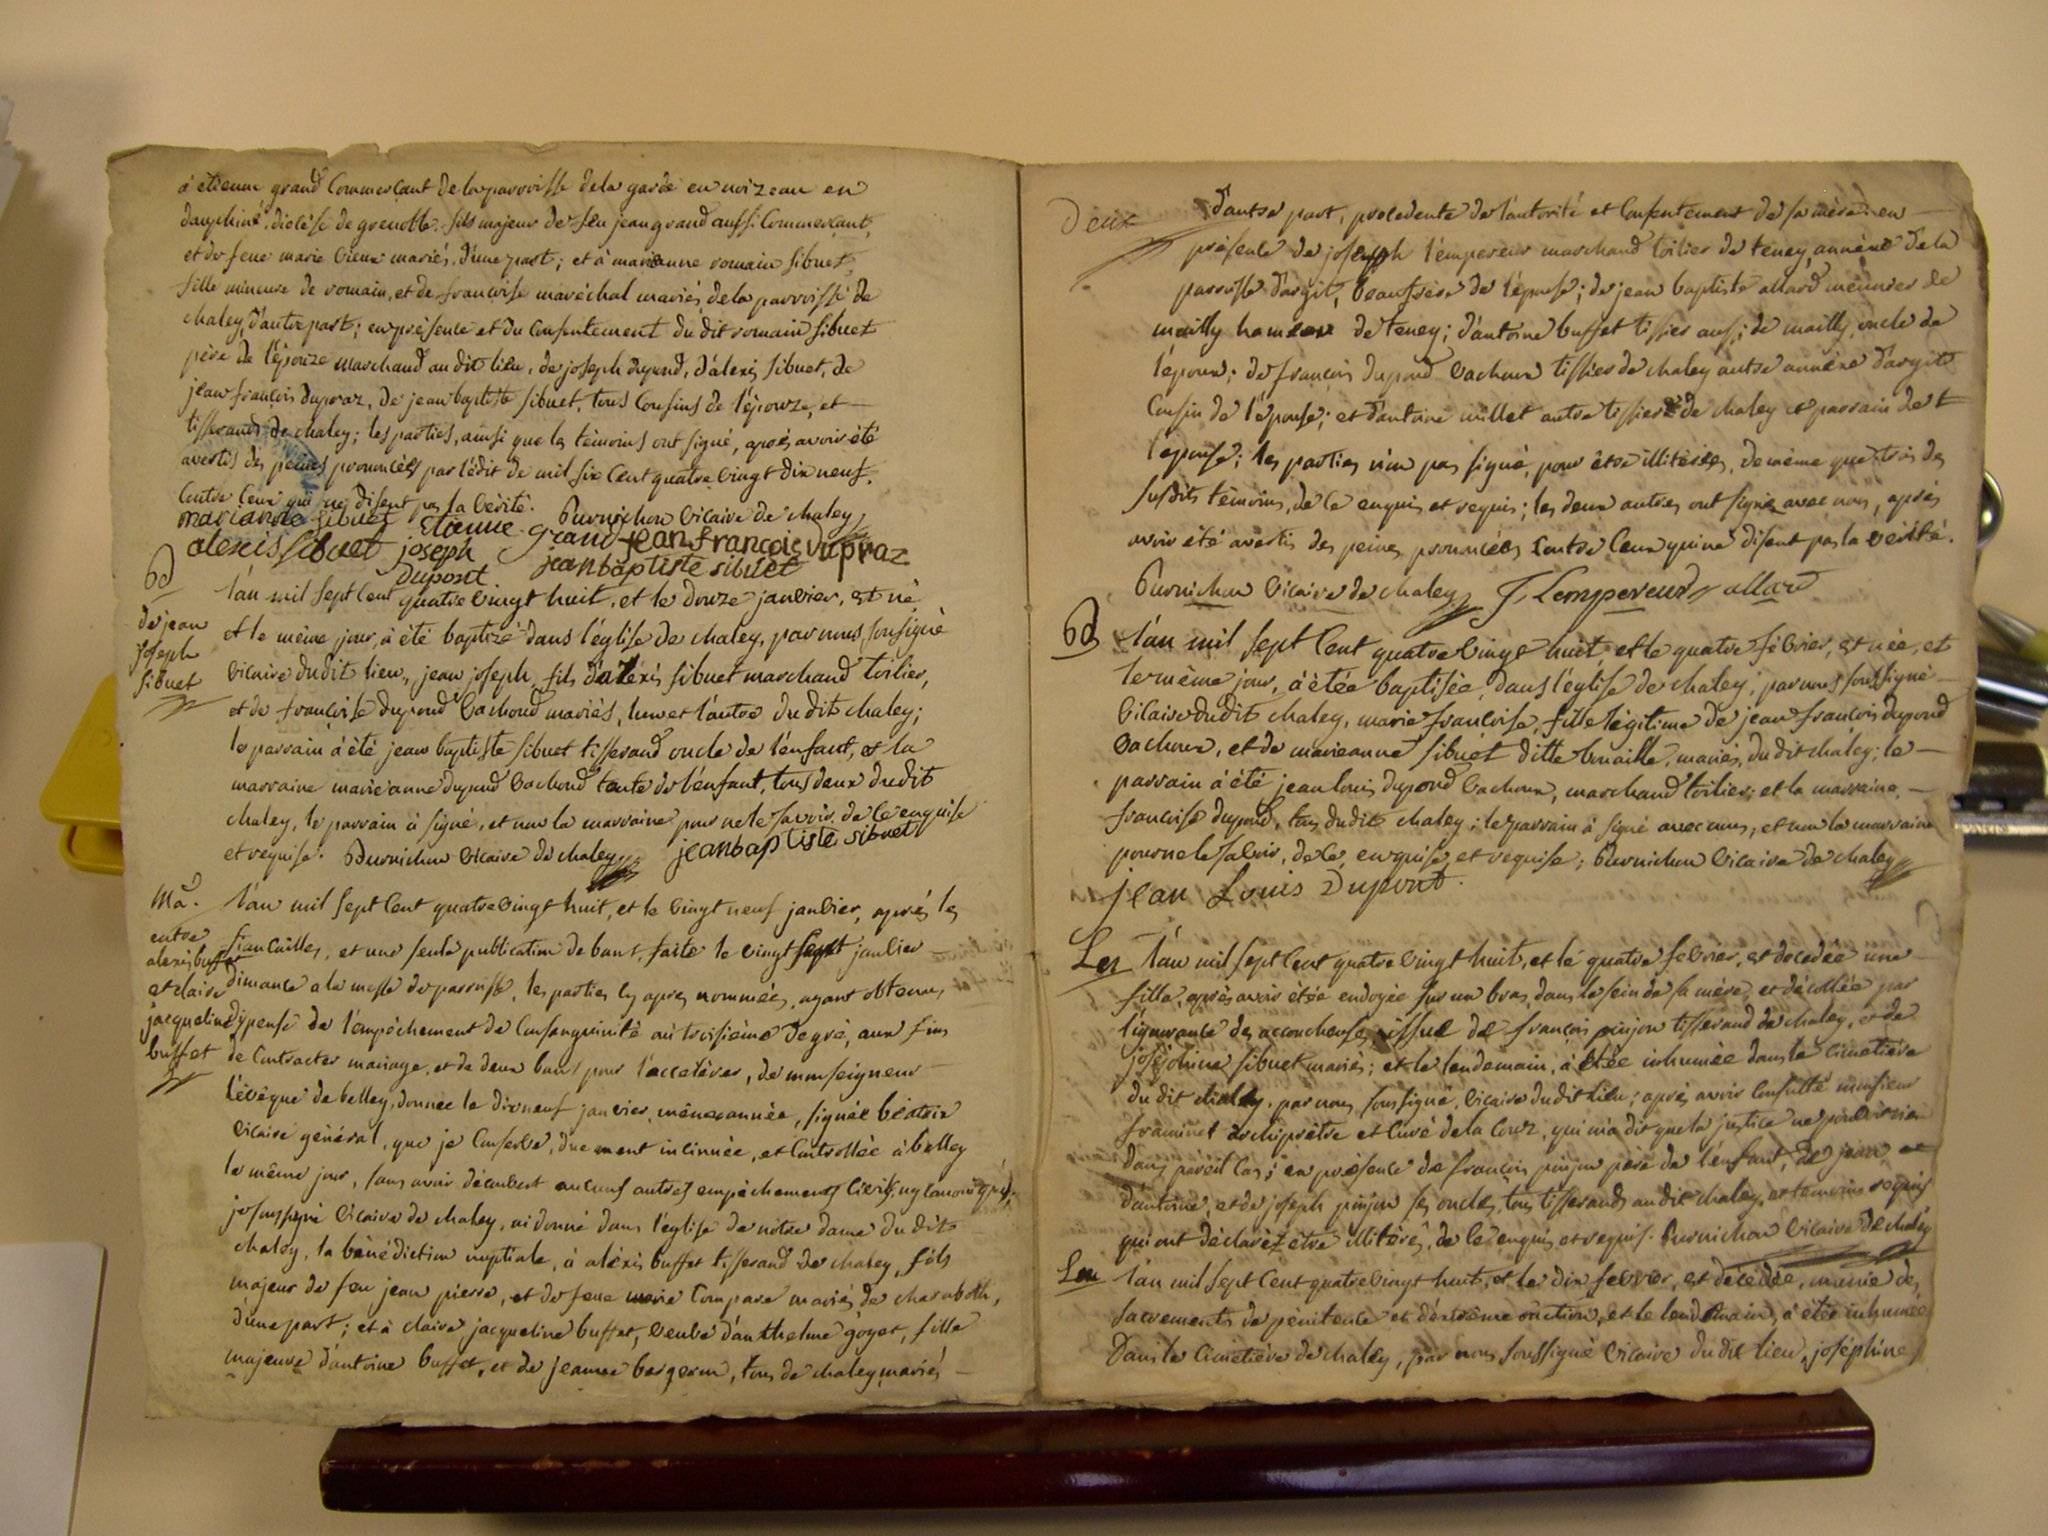 à étienne grand Commerçant de la parroisse de la garde en noizeau en
dauphiné, diocèse de grenoble. fils majeur de feu jean grand aussi Commerçant,
et de feue marie vieux mariés, d'une part; et à marianne romain sibuet,
fille mineure de romain, et de francoise maréchal mariés de la parroisse de
chaley d'autre part; en présence et du Consentement du dit romain sibuet
père de l'épouze marchand au dit lieu, de joseph dupond, d'alexis sibuet, de
jean françois dupraz, de jean baptiste sibuet, tous Cousins de l'épouze, et
tisserands de chaley; les parties, ainsi que les témoins ont signé, après avoir été
avertis des peines prononcées par l'édit de mil six cent quatre vingt dix neuf.
Contre Ceux qui ne disent pas la vérité.
marianne sibuet Etienne grand Burnichon vicaire de chaley
alexis sibuet joseph dupont jean francois dupraz
jean baptiste sibuet
Bd
de jean
joseph
sibuet
l'an mil sept cent quatre vingt huit, et le douze janvier, est né
et le même jour, à été baptizé dans l'église de chaley, par nous, soussigné
vicaire du dit lieu, jean joseph, fils d'aléxis sibuet marchand toilier,
et de françoise dupond vachoud mariés, l'un et l'autre du dit chaley;
le parrain à été jean baptiste sibuet tisserand oncle de l'enfant, et la
marraine marie anne dupond vachoud tante de l'enfant, tous deux du dit
chaley, le parrain à signé, et non la marraine pour ne le savoir, de ce enquise
et requise. Burnichon vicaire de chaley jean baptiste sibuet
Ma.
entre
alexis buffet
et claire
jacqueline
buffet
l'an mil sept cent quatre vingt huit, et le vingt neuf janvier, après les
fiancailles, et une seule publication de bans, faite le vingt sept janvier
dimance a la messe de parroisse, les parties cy apres nommées, ayant obtenu
dispense de l'empêchement de Consanguinité au troisième degré, aux fins
de Contracter mariage, et de deux bans pour l'accelérer, de monseigneur
l'évêque de belley, donnée le dix neuf janvier, même année, signée béatrix
vicaire général, que je Conserve, duement incinuée, et Controllée à belley
le même jour, sans avoir découvert aucuns autres empêchemens civils, ny canoniques,
je soussigné vicaire de chaley, ai donné dans l'église de nôtre dame du dit
chaley, la bénédiction nuptiale, à aléxis buffet tisserand de chaley, fils
majeur de feu jean pierre, et de feue marie Compare mariés de charaboth,
d'une part; et à claire jacqueline buffet, veuve d'anthelme goyet, fille
majeure d'antoine buffet, et de jeanne bergeron, tous de chaley, mariés
Deux
d'autre part, procedente de l'autorité et Consentement de sa mère; en
présence de joseph l'empereur marchand toilier de teney annéxe de la
parroisse d'argit, beaufrère de l'épouse; de jean baptiste allard meunier de
mailly hameau de teney; d'antoine buffet tissier aussi; de mailly, oncle de
l'époux; de françois dupond vachoux tissier de chaley autre annéxe d'argit
Cousin de l'épouse; et d'antoine millet autre tissier de chaley et parrain de
l'épouse; les parties n'on pas signé, pour être illitérées, de même que trois des
susdits témoins, de ce enquis et requis; les deux autres ont signé avec nous, après
avoir été avertis des peines prononcées Contre Ceux qui ne disent pas la vérité.
Burnichon vicaire de chaley J Lempereur allard
Bd
l'an mil sept Cent quatre vingt huit, et le quatre février, est née, et
le même jour, à étée baptisée, dans l'église de chaley, par nous soussigné
vicaire du dit chaley, marie françoise, fille légitime de jean françois dupond
vachoux, et de marieanne sibuet ditte binaille, mariés, du dit chaley; le
parrain à été jean louis dupond vachoux, marchand toilier; et la marraine
francoise dupond, tous du dit chaley; le parrain à signé avec nous, et non la marraine
pour ne le savoir, de ce, enquise, et requise; Burnichon vicaire de chaley
jean Louis Dupont.
l'an mil sept Cent quatre vingt huit, et le quatre fevrier, est décédée une
fille, après avoir étée endoyée sur un bras, dans le sein de sa mère, et décollée par
l'ignorance des accoucheuses, issue de françois pinjon tisserand de chaley, et de
joséphine sibuet mariés; et le lendemain, à étée inhumée dans le cimetière
du dit chaley, par nous soussigné, vicaire du dit lieu; après avoir Consulté monsieur
framinet archiprêtre et Curé de la Couz, qui m'a dit que la justice ne pouvoit rien
dans pareil Cas; en présence de françois pinjon père de l'enfant, de jean, et
d'antoine, et de joseph pinjon ses oncles, tous tisserands au dit chaley, et temoins requis
qui ont déclaréz être illitérés, de ce enquis et requis. Burnichon vicaire de chaley
l'an mil sept Cent quatre vingt huit, et le dix fevrier, est décédée, munie des
sacrements de pénitence et d'extrême onction, et le lendemain, à étée inhumée
Dans le Cimetière de chaley, par nous soussigné vicaire du dit lieu, joséphine